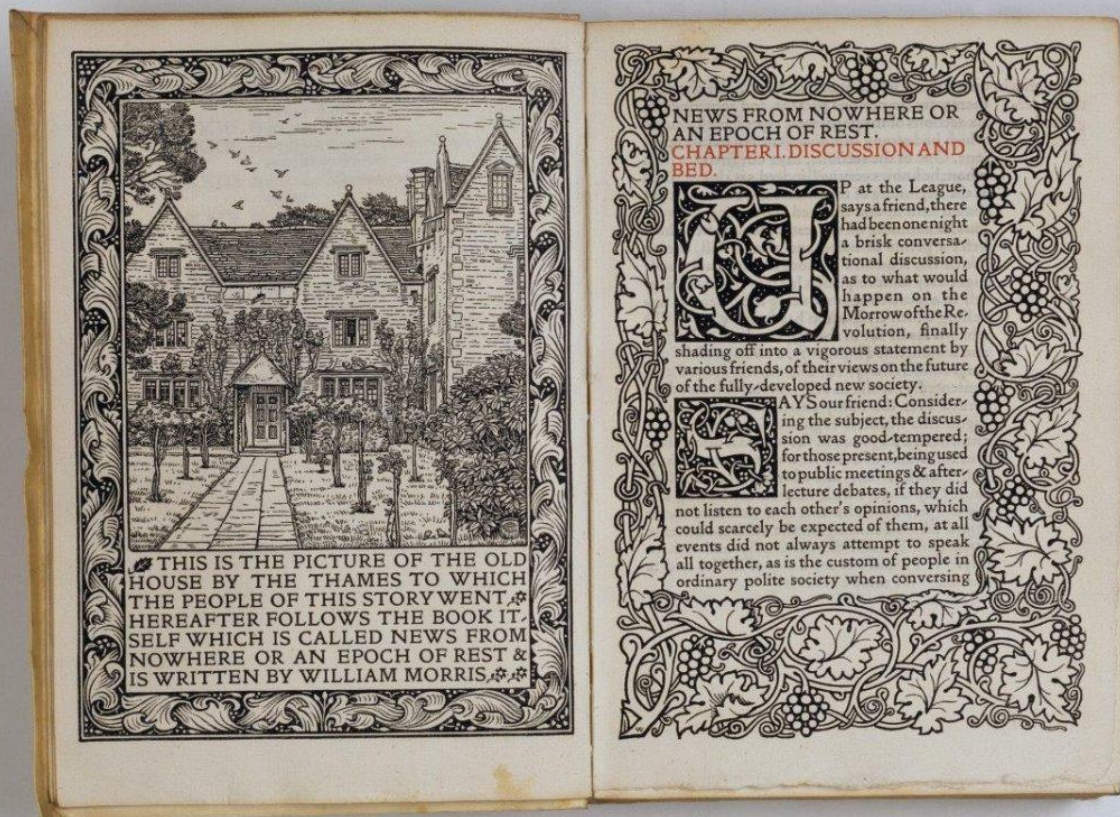 THIS IS THE PICTURE OF THE OLD
HOUSE BY THE THAMES TO WHICH
THE PEOPLE OF THIS STORY WENT
HEREAFTER FOLLOWS THE BOOK IT-
SELF WHICH IS CALLED NEWS FROM
NOWHERE OR AN EPOCH OF REST &
IS WRITTEN BY WILLIAM MORRIS
NEWS FROM NOWHERE OR
AN EPOCH OF REST.
CHAPTER I. DISCUSSION AND
BED.
UP at the League,
says a friend, there
had been one night
a brisk conversa-
tional discussion,
as to what would
happen on the
Morrow of the Re-
volution, finally
shading off into a vigorous statement by
various friends, of their views on the future
of the fully-developed new society.
SAYS our friend: Consider-
ing the subject, the discus-
sion was good-tempered;
for those present, being used
to public meetings & after-
lecture debates, if they did
not listen to each other's opinions, which
could scarcely be expected of them, at all
events did not always attempt to speak
all together, as is the custom of people in
ordinary polite society when conversing